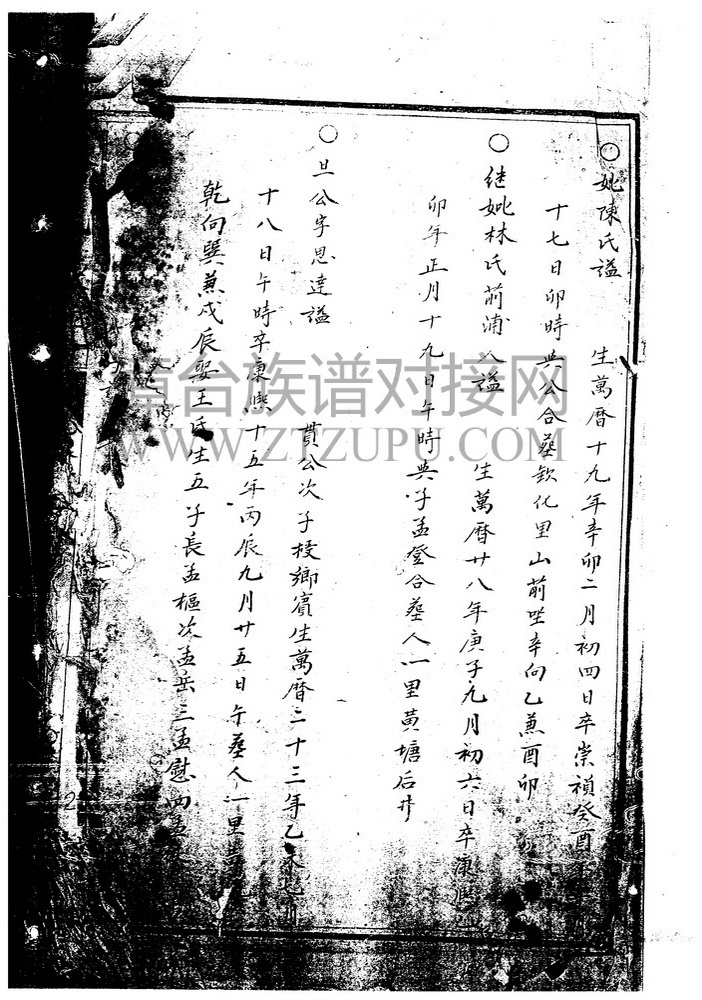 ○妣陳氏諡 生萬曆十九年辛卯二月初四日卒崇禎癸酉年
十七日卯時與公合葬欽化里山前坐辛向乙兼酉卯
○继妣林氏前浦人諡 生萬曆廿八年庚子九月初六日卒康熙
卯年正月十九日午時與子孟登合葬人一里黃塘后井
○旦公字思達諡 貫公次子授鄉賓生萬曆二十三年乙未九月
十八日午時卒康熙十五年丙辰九月廿五日午葬人一里
乾向巽兼戌辰娶王氏生五子長孟樞次孟岳三孟慰四孟
直台族谱对接网
WWW.ZTZUPU.COM
2